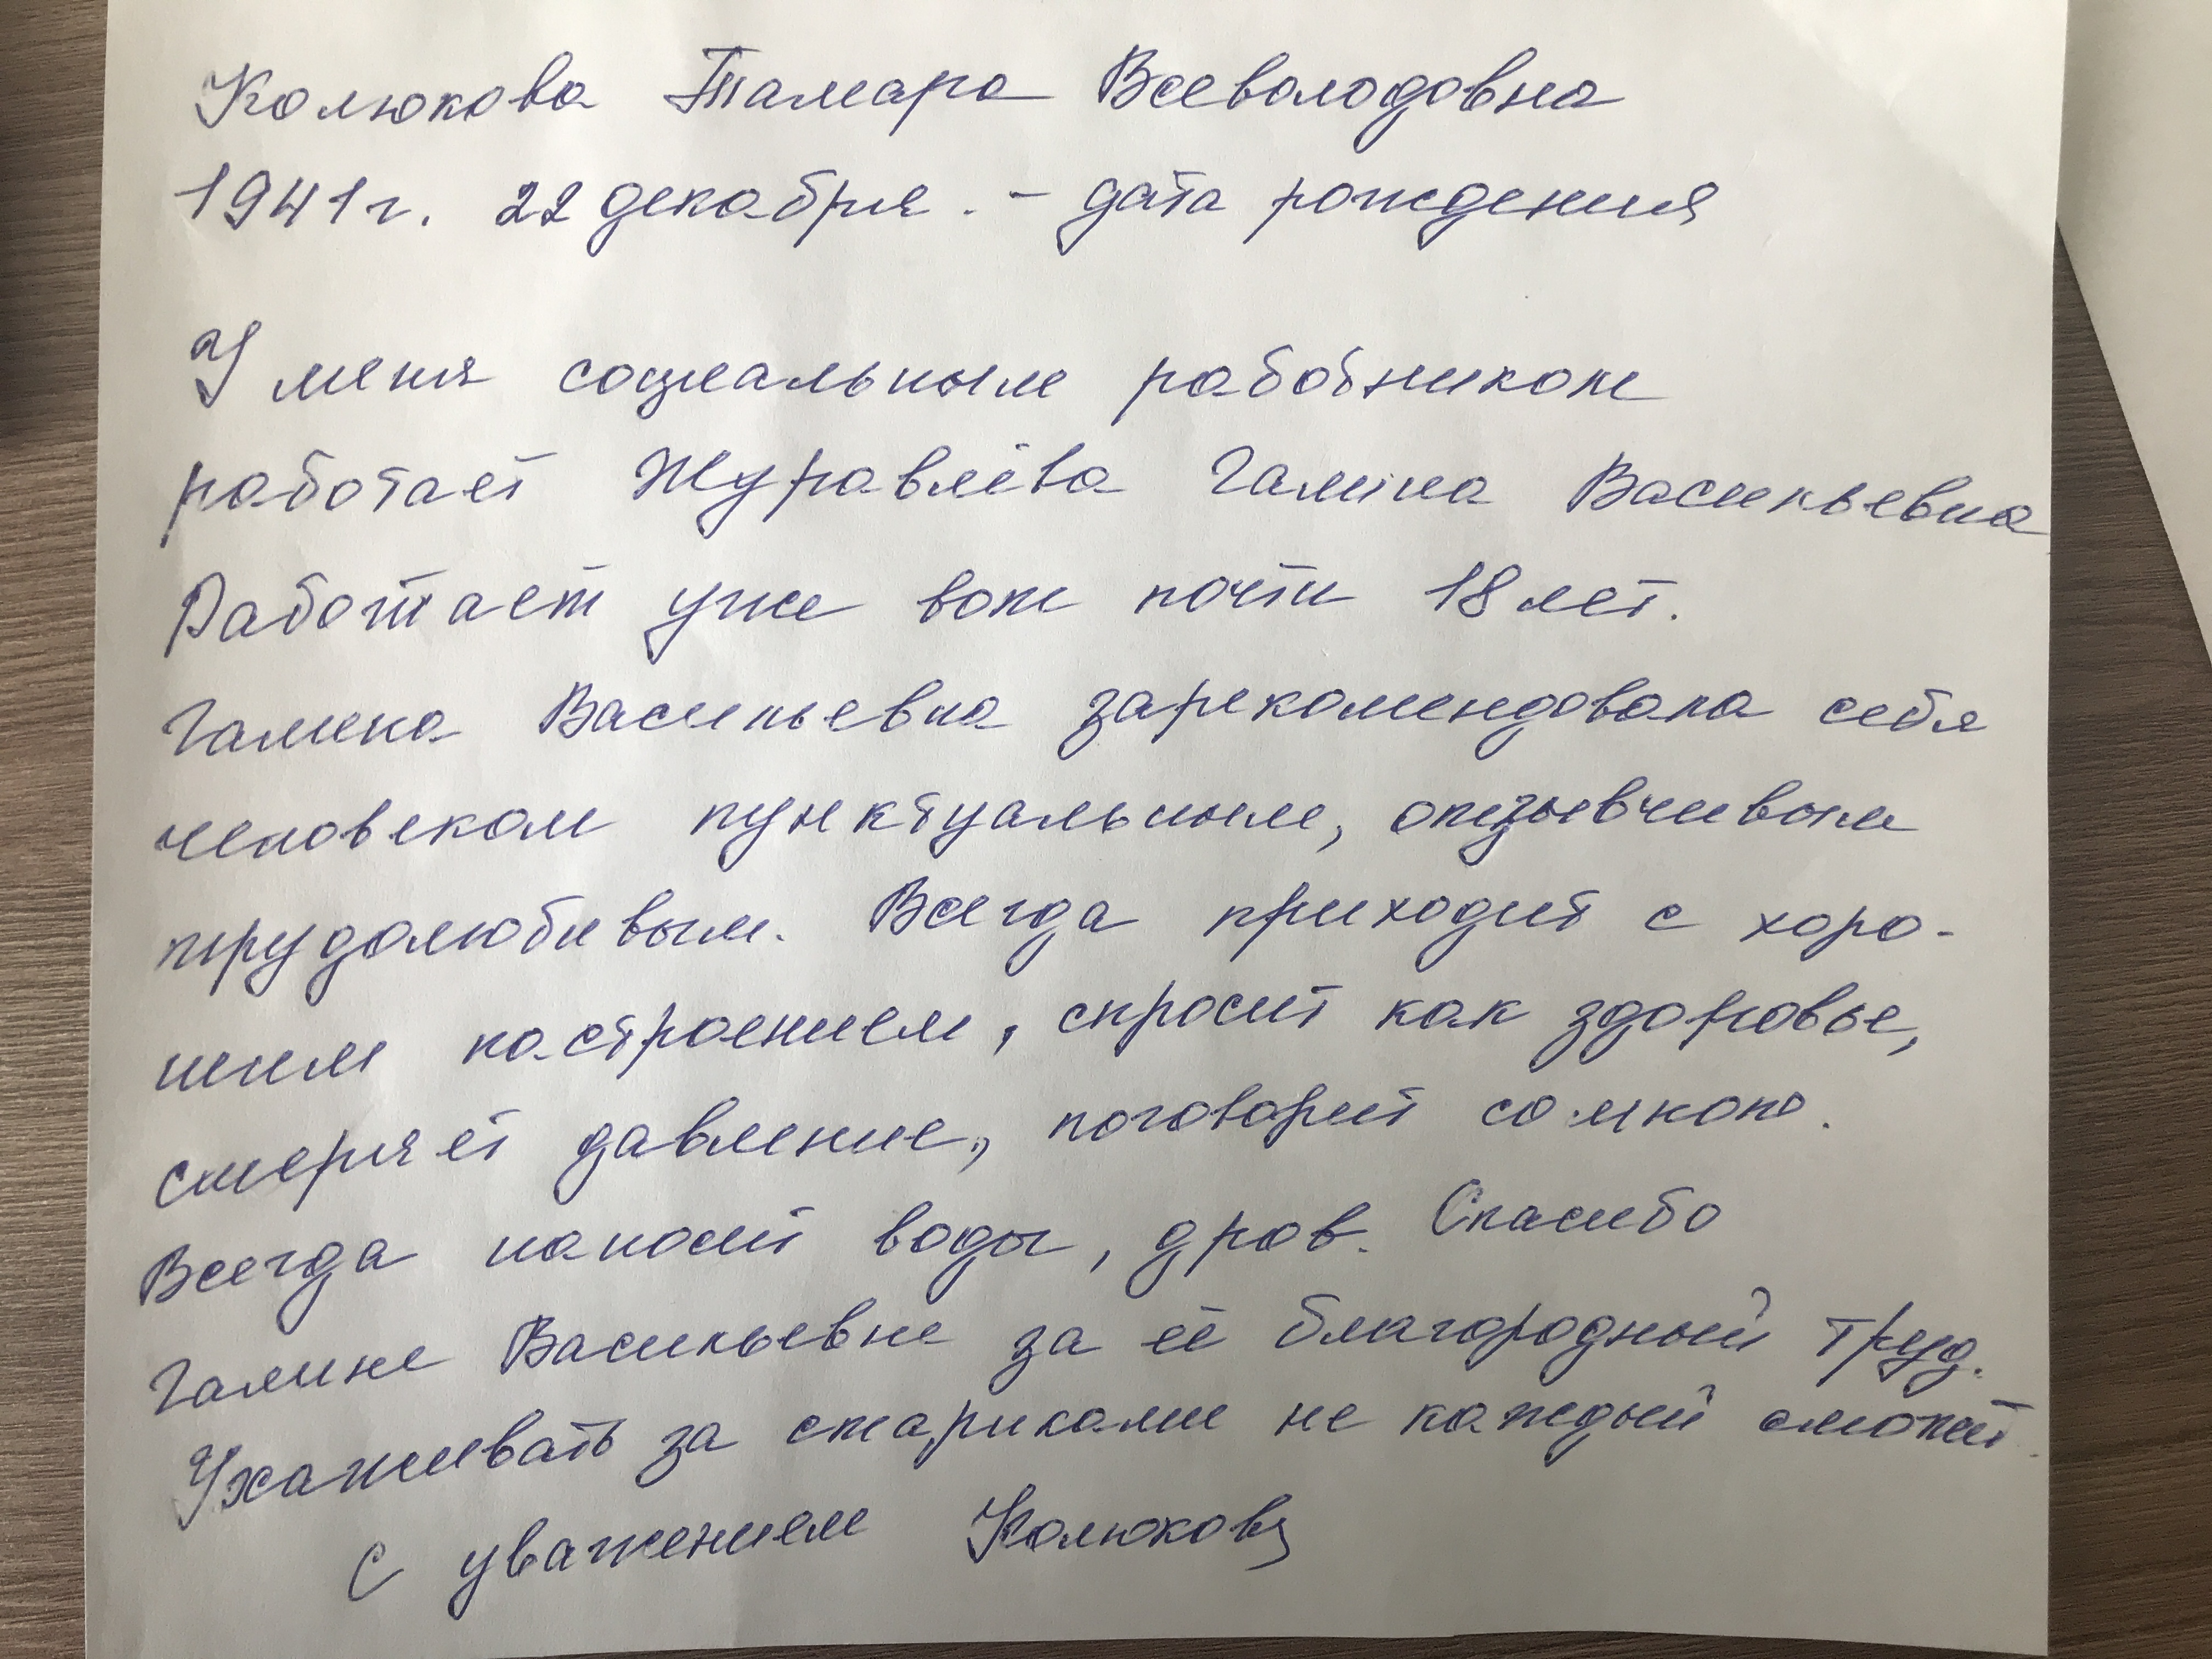 Колюкова Тамара Всеволодовна
1941 г. 22 декабря. - дата рождения
У меня социальным работником
работает Журавлёва Галина Васильевна
Работает уже вот почти 18 лет.
Галина Васильевна зарекомендовала себя
человеком пунктуальным, отзывчивым
трудолюбивым. Всегда приходит с хоро-
шим настроением, спросит как здоровье,
смеряет давление, поговорит со мною.
Всегда наносит воды, дров. Спасибо
Галине Васильевне за её благородный труд.
Ухаживать за стариками не каждый сможет.
С уважением Колюкова